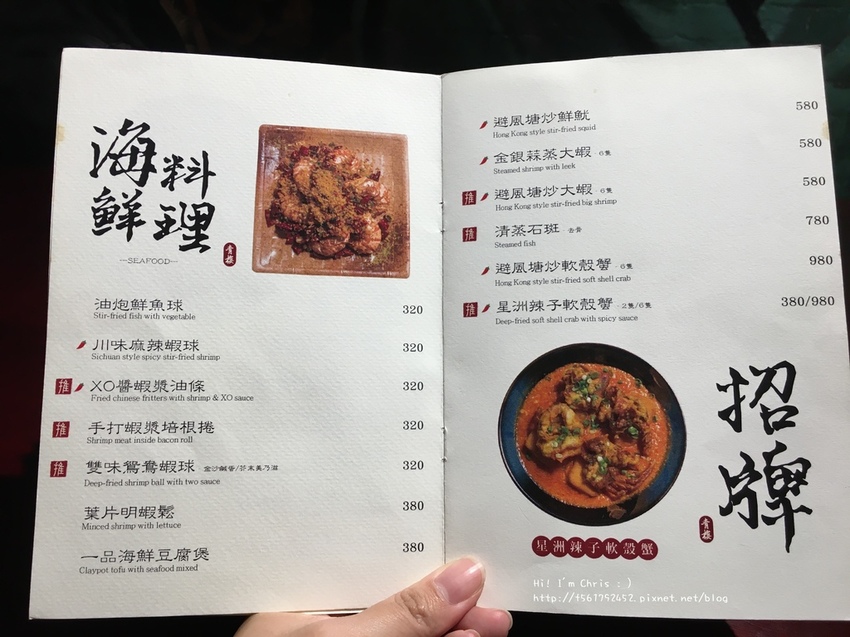 海鮮
料理
---SEAFOOD---
油炮鮮魚球 320
Stir-fried fish with vegetable
川味麻辣蝦球 320
Sichuan style spicy stir-fried shrimp
推 XO醬蝦漿油條 320
Fried chinese fritters with shrimp & XO sauce
推 手打蝦漿培根捲 320
Shrimp meat inside bacon roll
推 雙味鴛鴦蝦球 金沙鹹香/芥末美乃滋 320
Deep-fried shrimp ball with two sauce
葉片明蝦鬆 380
Minced shrimp with lettuce
一品海鮮豆腐煲 380
Claypot tofu with seafood mixed
避風塘炒鮮魷 580
Hong Kong style stir-fried squid
金銀蒜蒸大蝦 - 6隻 580
Steamed shrimp with leek
推 避風塘炒大蝦 - 6隻 580
Hong Kong style stir-fried big shrimp
推 清蒸石斑 - 去骨 780
Steamed fish
避風塘炒軟殼蟹 - 6隻 980
Hong Kong style stir-fried soft shell crab
推 星洲辣子軟殼蟹 - 2隻/6隻 380/980
Deep-fried soft shell crab with spicy sauce
招牌
星洲辣子軟殼蟹
Hi! I'm Chris : )
http://f561792452.pixnet.net/blog